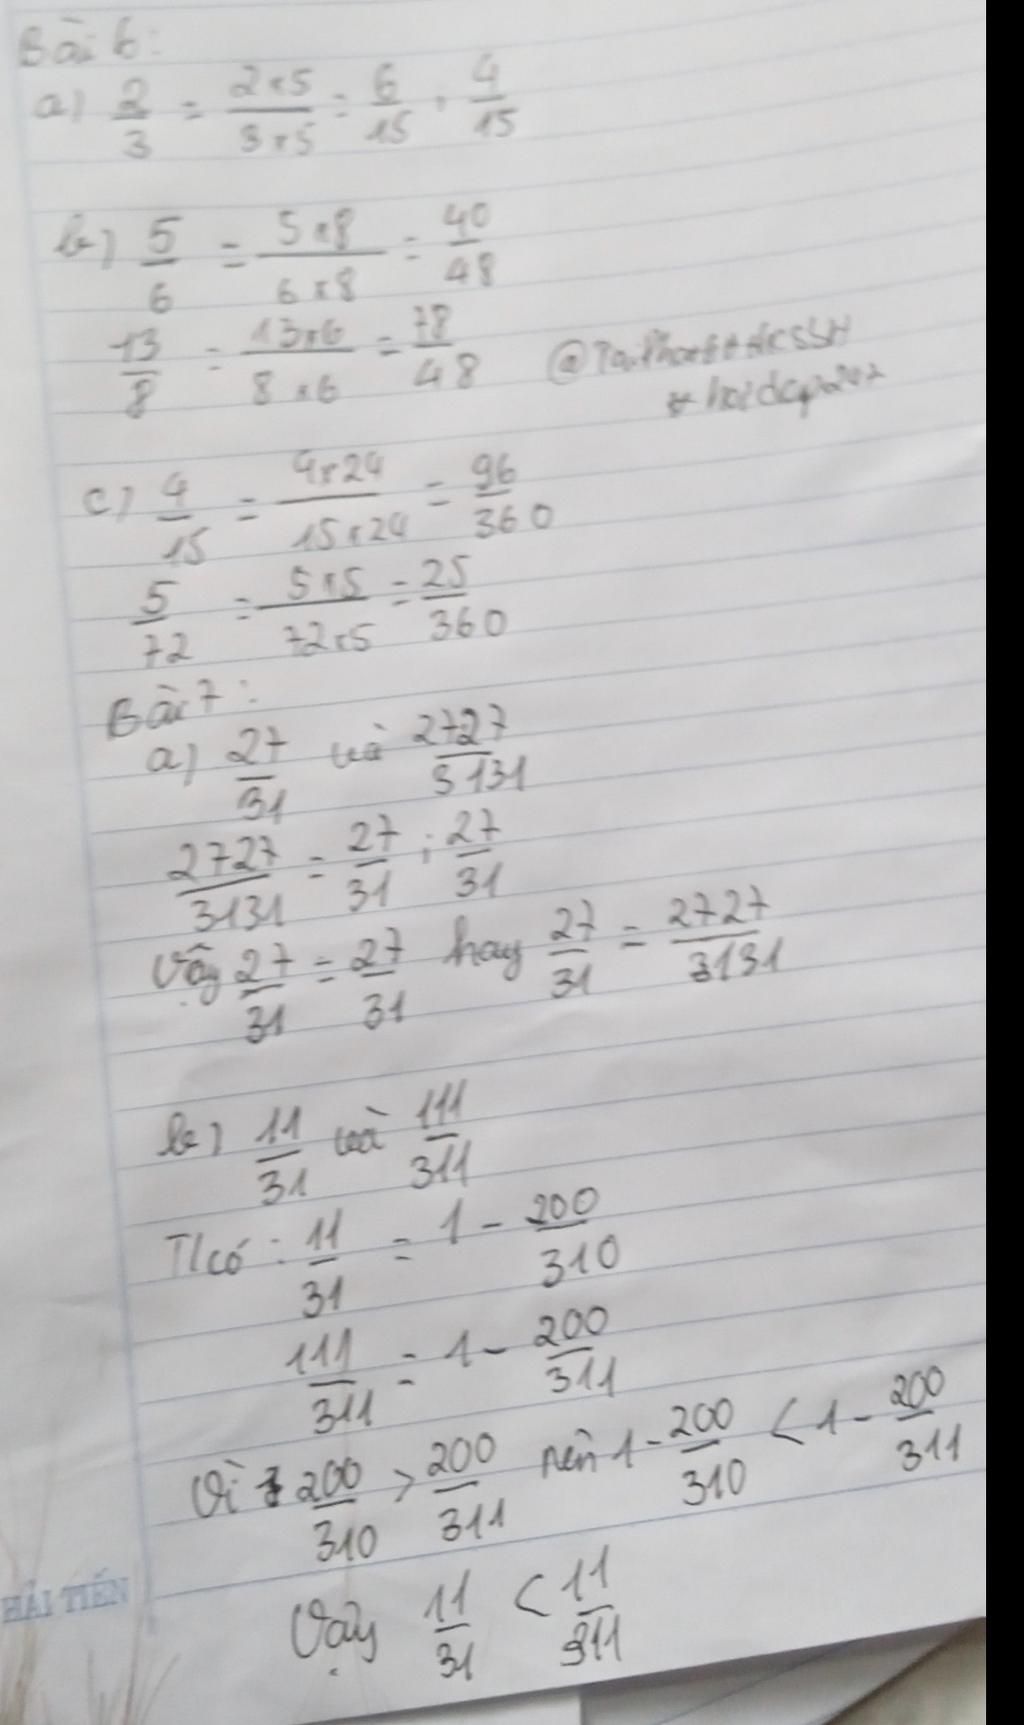 Bài 6:
a) 2/3 = 2×5/3×5 = 6/15 ; 4/15
b) 5/6 = 5×8/6×8 = 40/48
13/8 = 13×6/8×6 = 78/48
c) 4/15 = 4×24/15×24 = 96/360
5/72 = 5×5/72×5 = 25/360
Bài 7:
a) 27/31 và 2727/3131
2727/3131 = 27/31 ; 27/31
Vậy 27/31 = 27/31 hay 27/31 = 2727/3131
b) 11/31 và 111/311
T/có : 11/31 = 1 - 200/310
111/311 = 1 - 200/311
Vì 200/310 > 200/311 nên 1 - 200/310 < 1 - 200/311
Vậy 11/31 < 11/311
HẢI TIẾN